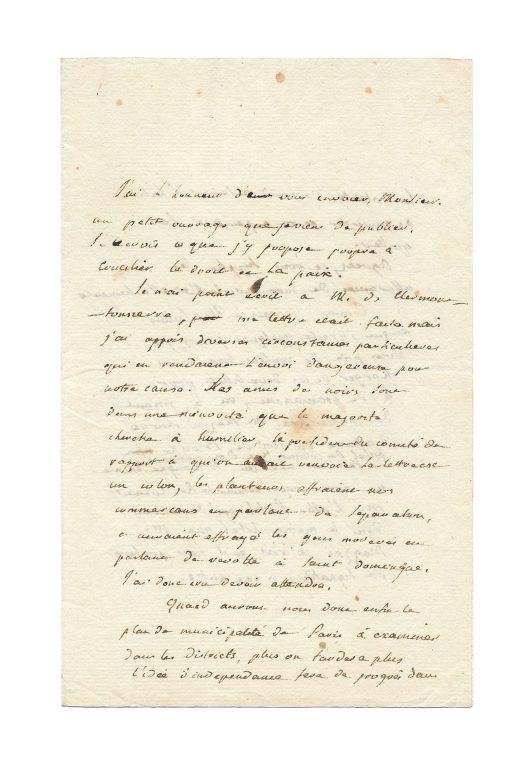 J'ai l'honneur de vous envoier, Monsieur.
un petit ouvrage que je viens de publier.
Je crois ce que j'y propose propre à
concilier le droit et la paix.
Je n'ai point écrit à M. de Clermont-
-tonnerre, ma lettre etait faite mais
j'ai appris diverses circonstances particulieres
qui en rendaient l'envoi dangereux pour
notre cause. Les amis des noirs sont
dans une minorité que la majorité
cherche à humilier, le président du comité de
rapport à qui on aurait renvoié la lettre est
un colon, les planteurs effraient nos
commercans en parlant de separation,
et auraient effrayé les gens moderés en
parlant de revolte à Saint domingue.
J'ai donc cru devoir attendre.
Quand aurons nous donc enfin le
plan de municipalité de Paris à examiner
dans les districts, plus on tardera plus
l'idée d'independance fera de progrès dans